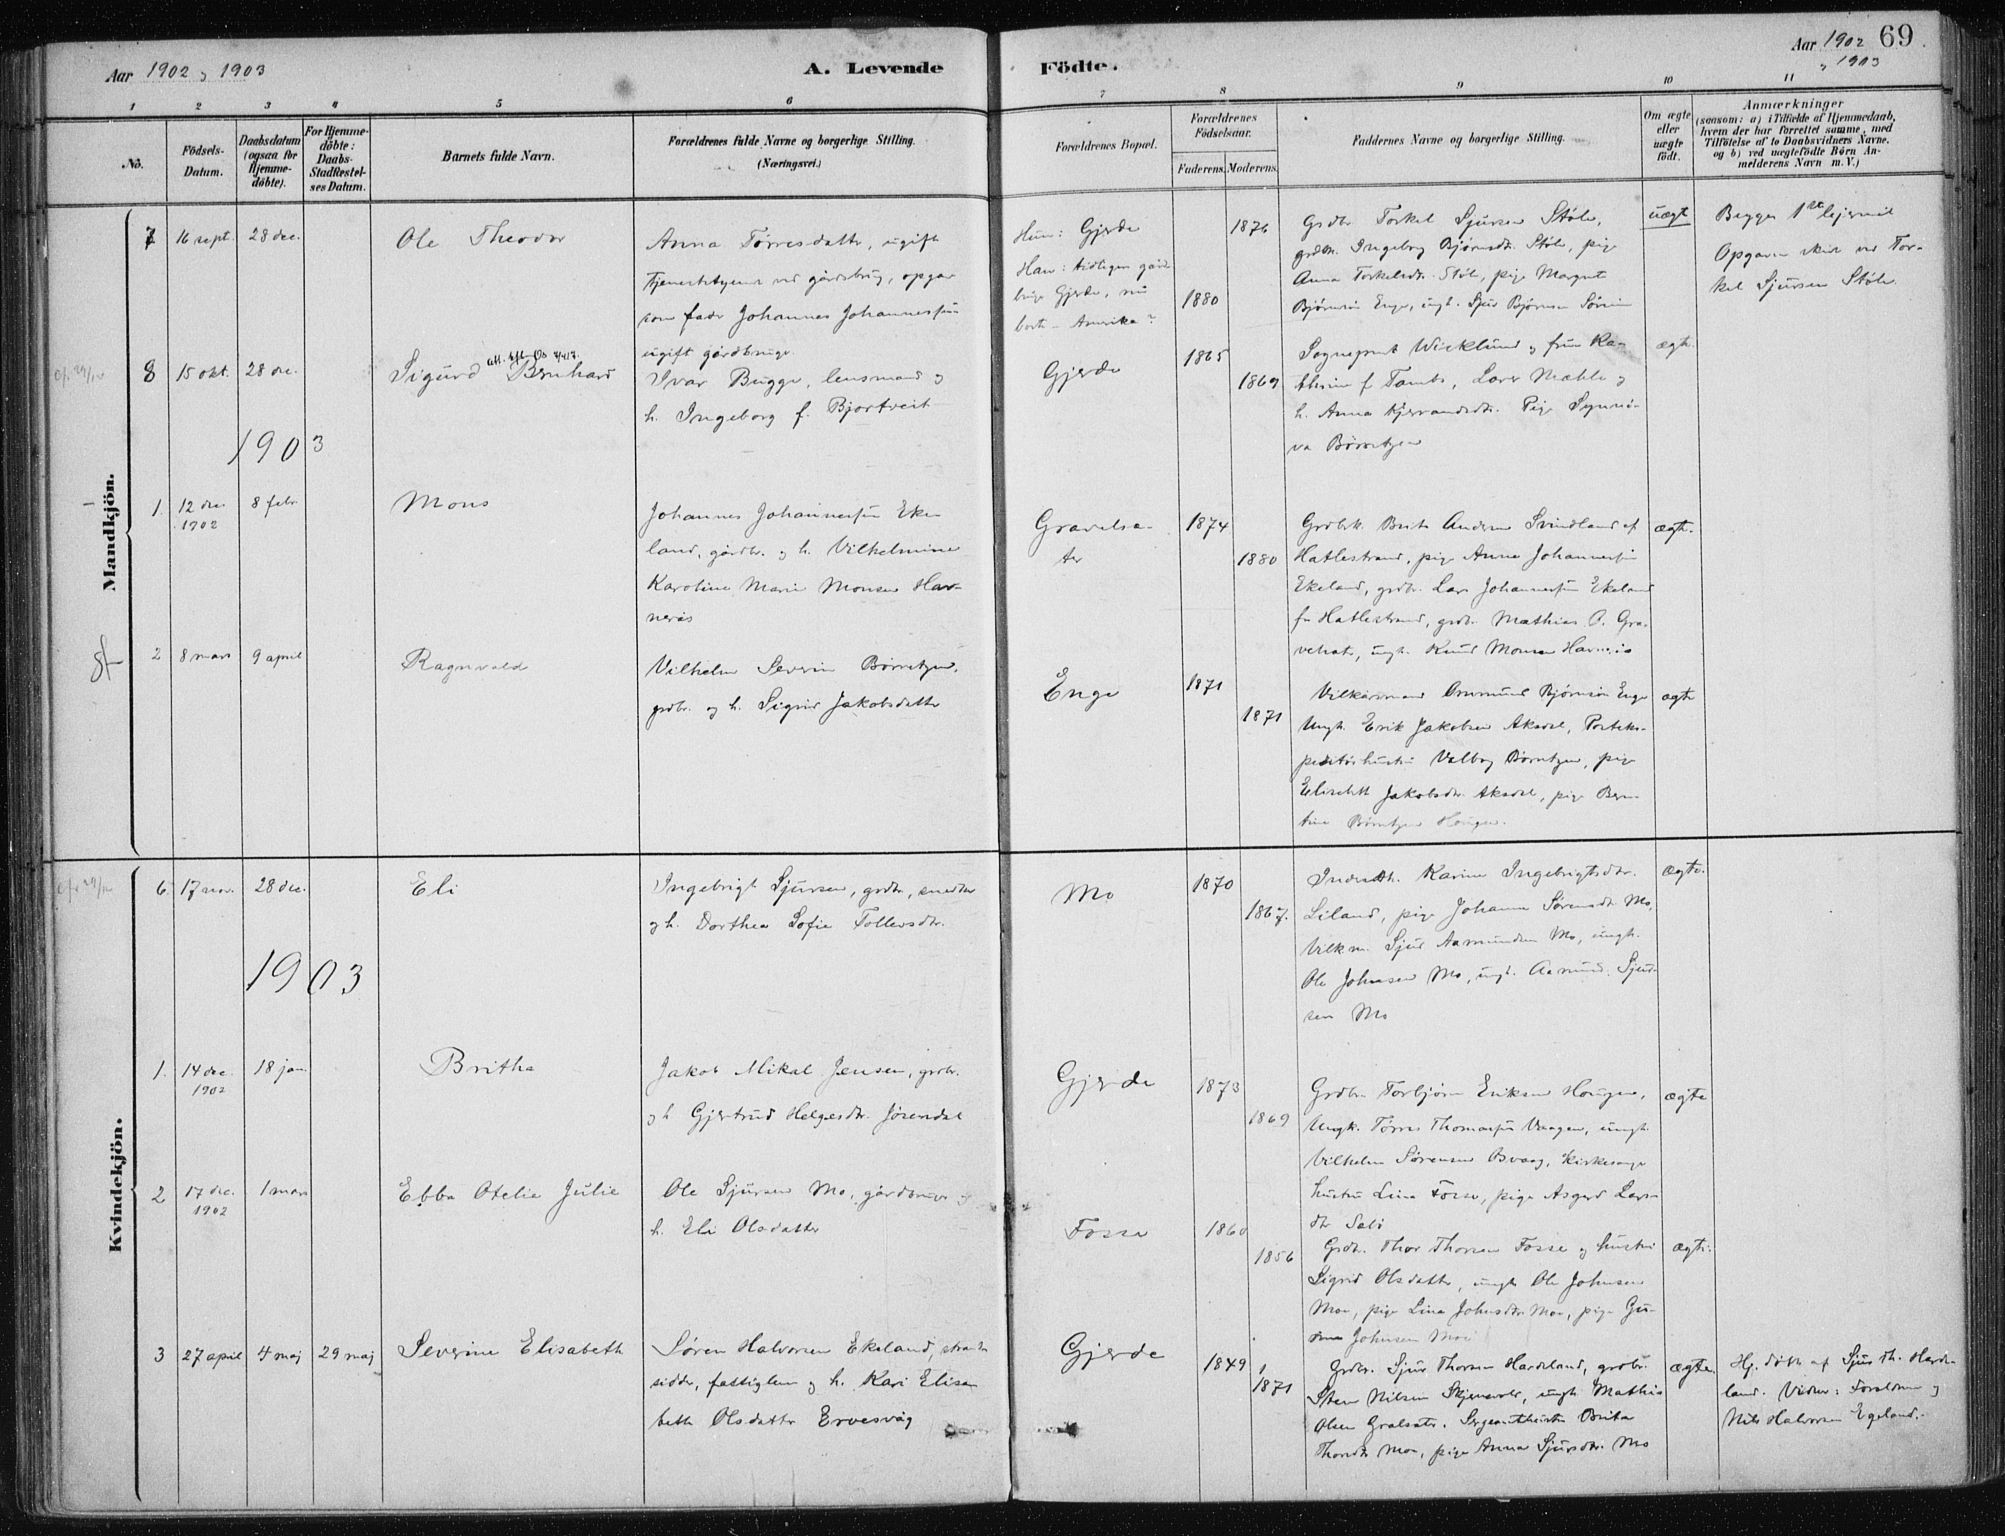 Aar 1902 og 1903
A. Levende
Födte.
Aar 1902 69
" 1903
1 2 3 4 5 6 7 8 9 10 11
No.
Födsels-
Datum.
Daabsdatum
(ogsaa for
Hjemme-
döbte).
For Hjemme-
döbte:
Daabs-
Stadfæstel-
ses Datum.
Barnets fulde Navn.
Forældrenes fulde Navne og borgerlige Stilling.
(Næringsvei.)
Forældrenes Bopæl.
Forældrenes
Födselsaar.
Faderens. Moderens.
Faddernes Navne og borgerlige Stilling.
Om ægte
eller
uægte
födt.
Anmærkninger
(saasom: a) i Tilfælde af Hjemmedaab,
hvem der har forrettet samme, med
Tilföielse af to Daabsvidners Navne,
og b) ved uægtefödte Börn An-
melderens Navn m. V.)
Mandkjön.
7 16 sept. 28 dec. Ole Theodor
Anna Tørresdatter, ugift
tjenestetyende ved gårdsbrug, opgav
som fader Johannes Johannessen
ugift gårdbruger
Hun: Gjerde
Han: tidligere gård-
bruger Gjerde, nu
bort - Amerika?
1876
1880
Grdbr Torkel Sjursen Støle,
grdbr. Ingeborg Bjørnsdtr. Støle, pige
Anna Torkelsdtr. Støle, pige Margret
Bjørnsen Enge, ungk. Sjur Bjørnsen
uægt
Begges 1ste lejermål
Opgaven skeet ved Tor-
kel Sjursen Støle
8 15 okt. 28 dec. Sigurd Bernhard
Ivar Bugge, lensmand og
h. Ingeborg f. Bjortveit
Gjerde
1865
1869
Sogneprest Wicklund og frue Ka-
thrine f. Tambs, Lars Mæhle og
h. Anna Kjervandsdtr. Pige Synnø-
va Børretzen
ægt.
1903
1. 12 dec. 8 febr. Mons
1902
Johannes Johannessen Eke-
land, gårdbr. og h. Vilhelmine
Karoline Marie Monsen Hav-
nerås
Gravelsæ-
ter
1874
1880
Grdbrk. Brita Andersen Svindland af
Hatlestrand, pige Anna Johannessen
Ekeland, grdbr. Lars Johannessen Ekeland
fr Hatlestrand, grdbr. Mathias O. Gra-
velsæter, ungk. Knud Monsen Havnerås
ægte.
2 8 mars 9 april Ragnvald
Vilhelm Severin Børretzen,
grdbr. og h. Sigrid Jakobsdatter
Enge
1871
1871
Vilkårsmand Ommund Bjørnsen Enge
Ungk. Erik Jakobsen Aksdal, Posteks-
peditørhustru Valborg Børretzen, pige
Elisabeth Jakobsdtr. Aksdal, pige Bern-
tine Børretzen Hougen.
ægte
Kvindekjön.
6. 17 nov. 28 dec. Eli
Ingebrigt Sjursen, grdbr., snedker
og h. Dorthea Sofie Tollevsdtr.
Mo
1870
1867.
Karine Ingebrigtsdtr.
Liland, pige Johanne Sørensdtr. Mo,
Vilkm. Sjur Aamundsen Mo, ungk.
Ole Johnsen Mo, ungk. Aamund Sjur-
sen Mo
ægte.
1903
1. 14 dec. 18 jan. Britha
1902
Jakob Mikal Jensen, grdbr.
og h Gjertrud Helgesdtr. Jøsendal
Gjerde
1873
1869
Grdbr. Torbjørn Eriksen Hougen,
Ungk. Tørres Thomassen Vaagen, ungk.
Vilhelm Sørensen Bvaag, Kirkesanger
hustru Lina Fosse, pige Asgerd Lars-
dtr Sæbø
ægte
2 17 dec. 1 mars Ebba Otelie Julie
1902
Ole Sjursen Mo, gårdbruger og
h. Eli Olsdatter
Fosse
1860
1856
Grdbr. Thor Thorsen Fosse og hustru
Sigrid Olsdatter, ungk. Ole Johnsen
Moe, pige Lina Johnsdtr. Moe, pige Gu-
rine Johnsen Moe
ægte.
3 27 april 4 maj 29 maj Severine Elisabeth
Søren Halvorsen Ekeland, strand-
sidder, fattiglem og h. Kari Elisa-
beth Olsdatter Ervesvåg
Gjerde
1849
1871
Grdbr. Sjur Thorsen Hardeland, grdbr.
Sten Nilsen Skjeravold, ungk. Mathis
Olsen Gralsæter. Sergeanthustru Brita
Thorsdtr. Moe, pige Anna Sjursdtr. Mo
ægte
Hj. døbt af Sjur Th. Harde-
land. Vidner: Forældrene og
Nils Halvorsen Egeland.